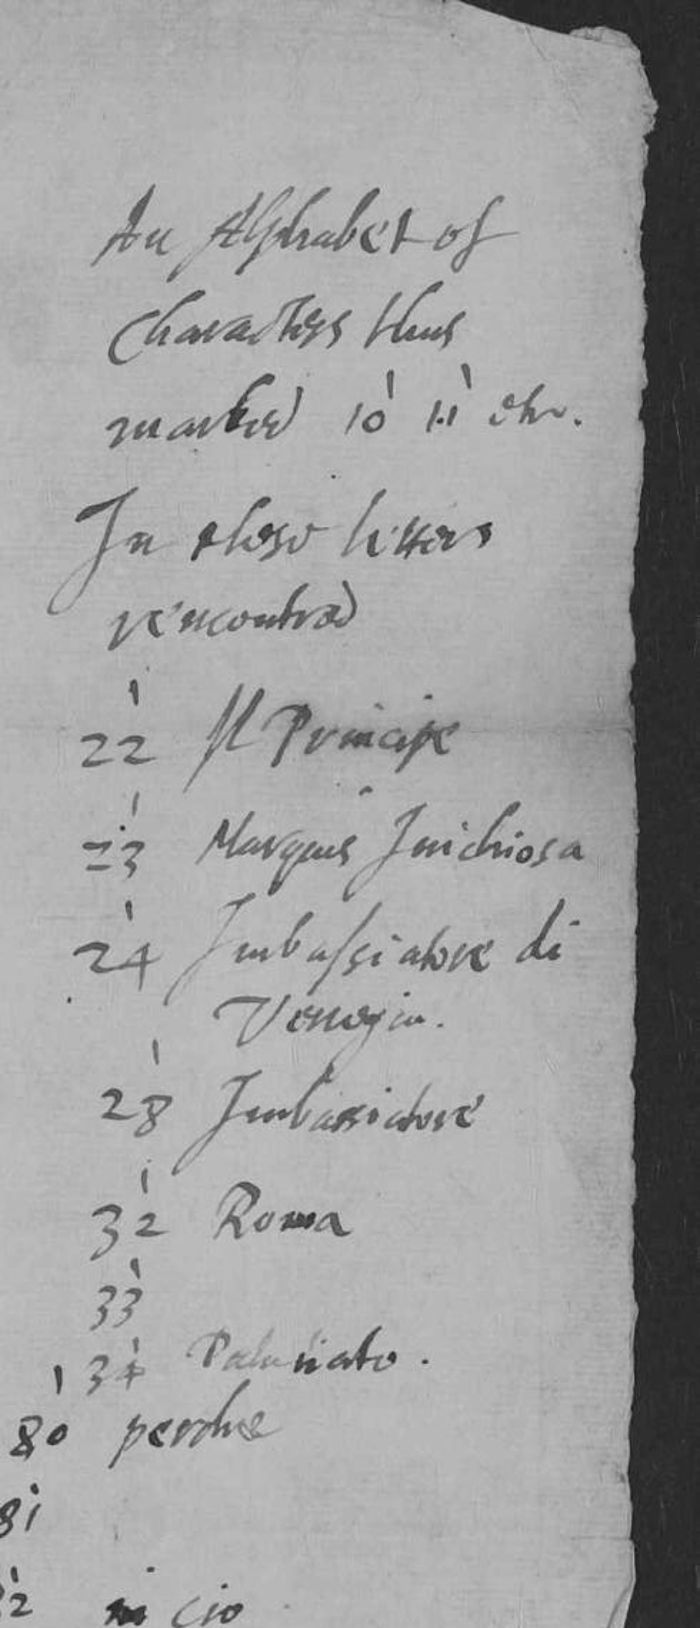 An Alphabet of
Characters thus
marked 10' 11' etc.
In these letters
rencontred
22' Il Principe
23' Marques Inichiosa
24' Imbassiatore di
Venegia.
28' Imbassiatore
32' Roma
33'
34' Palatinato.
80' perche
81'
in cio